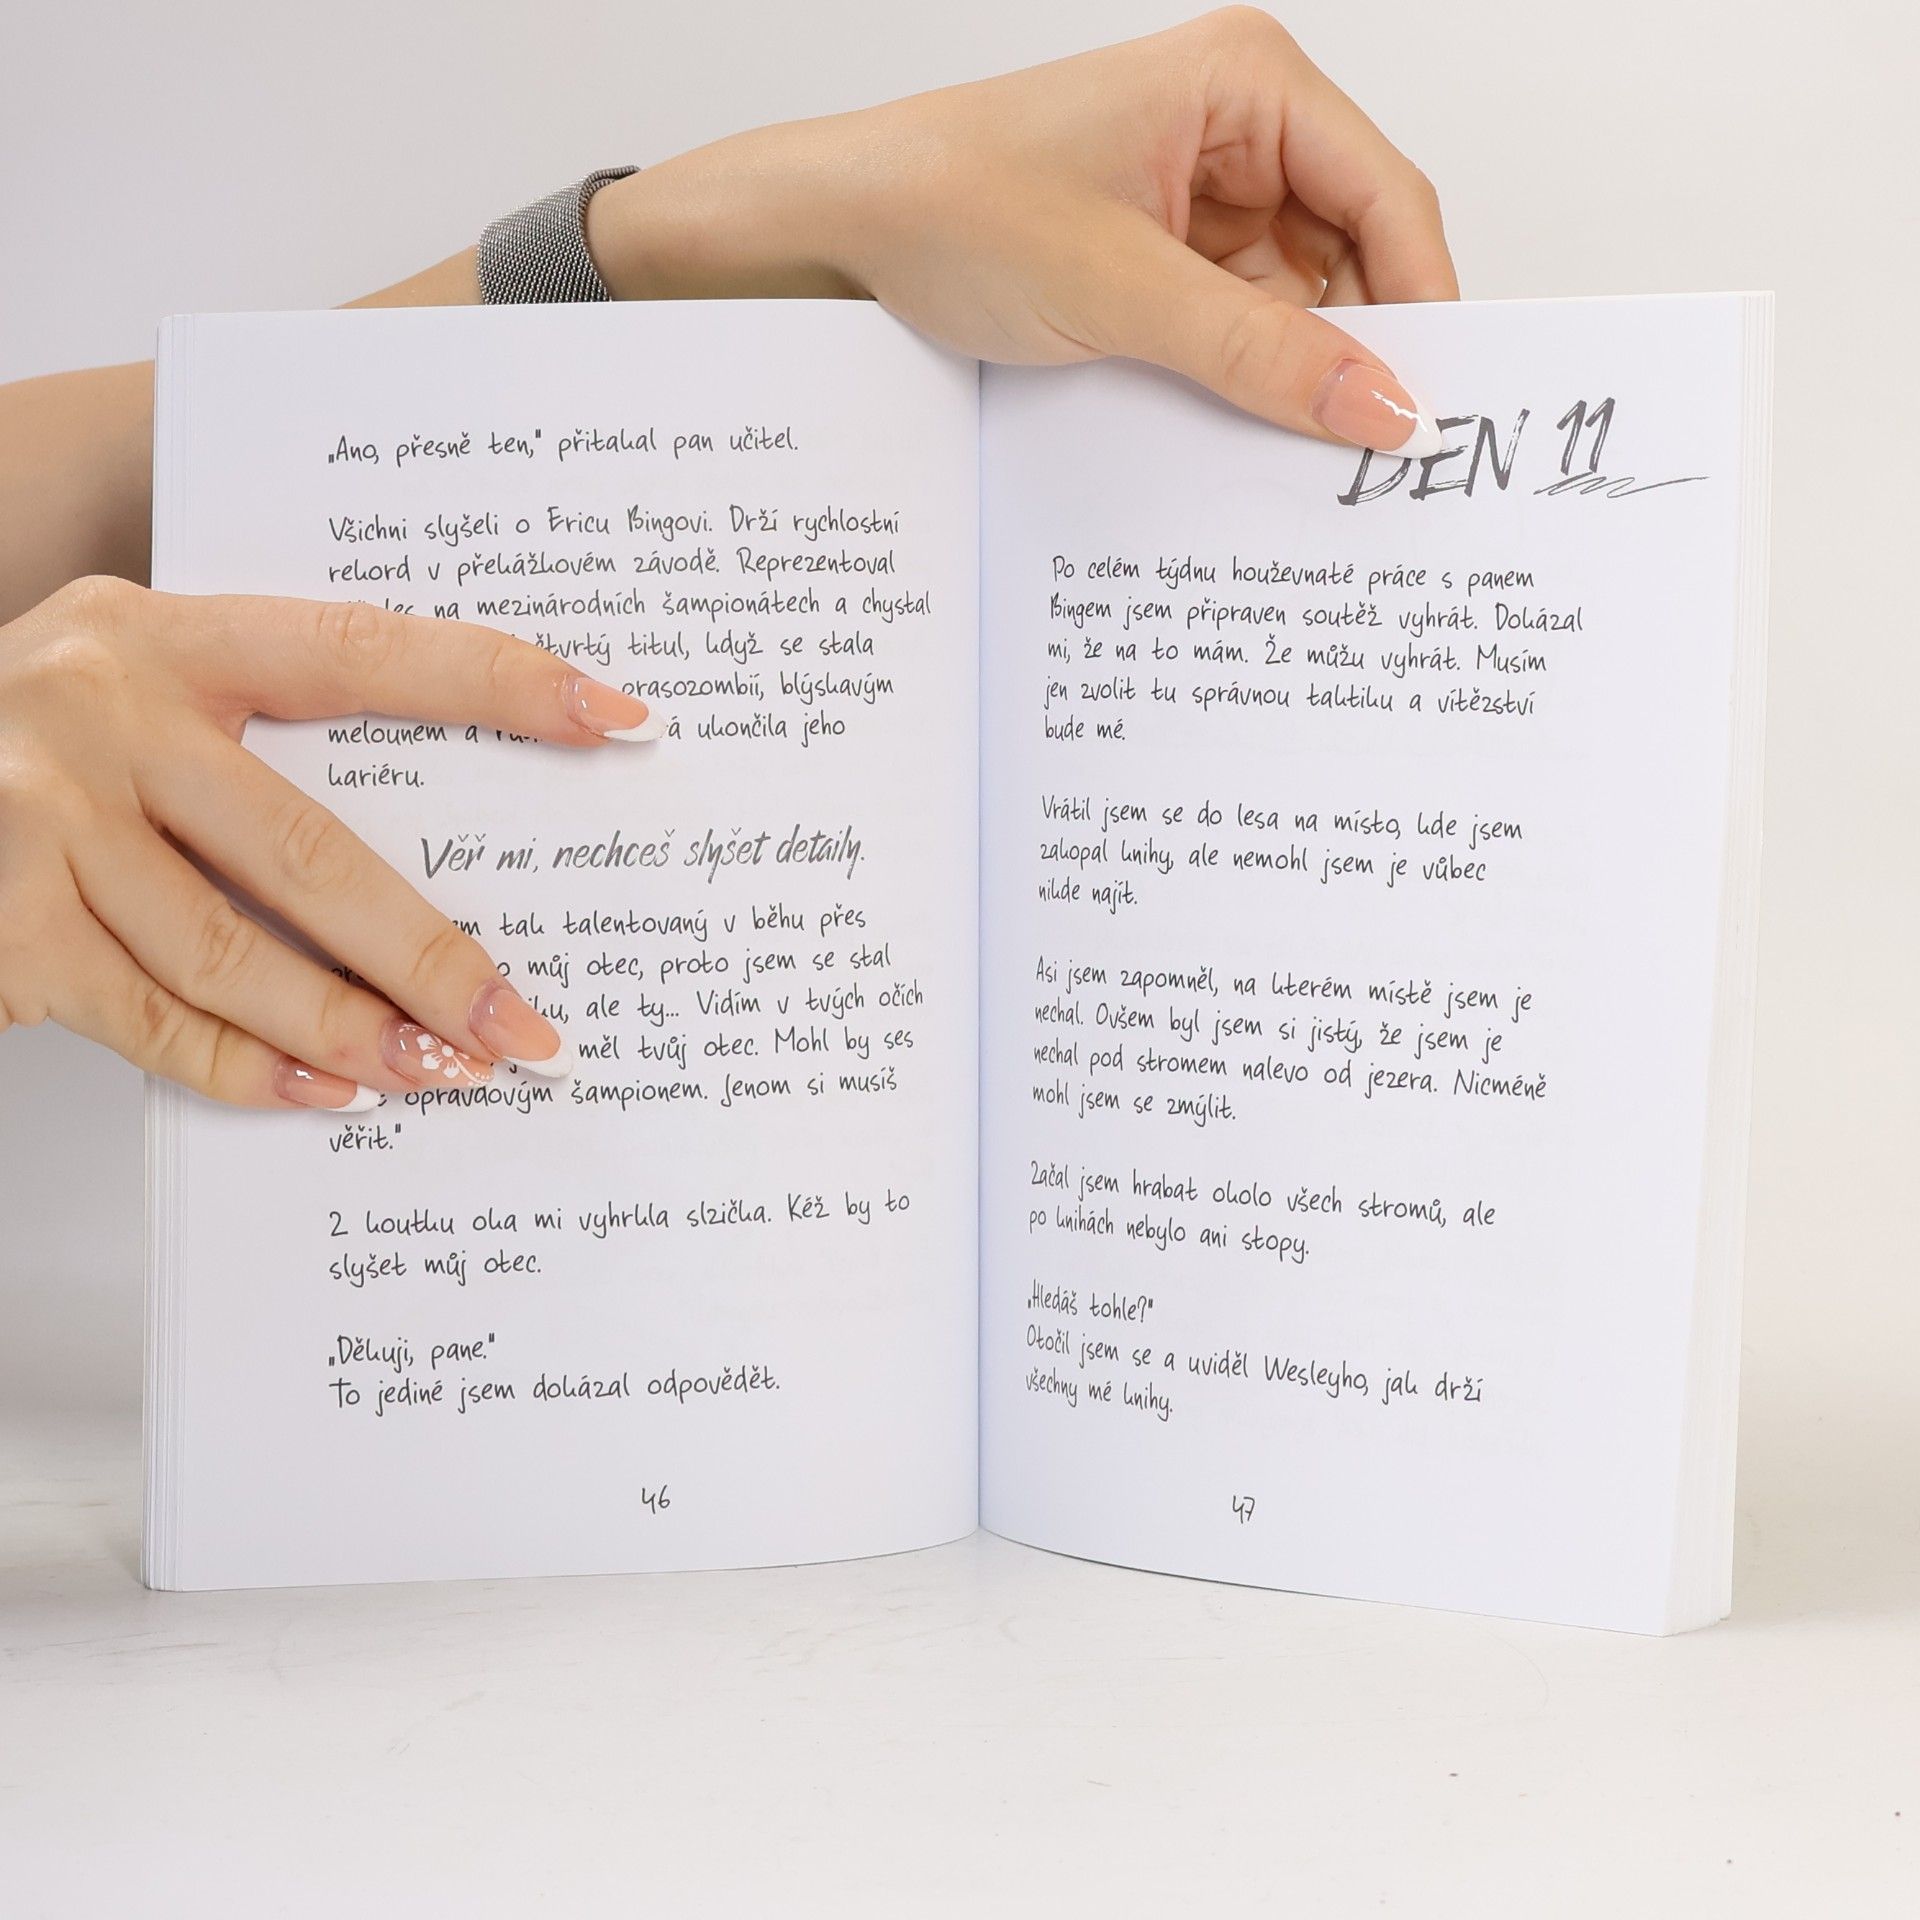 „Ano, přesně ten,“ přitakal pan učitel.
Všichni slyšeli o Ericu Bingovi. Drží rychlostní
rekord v překážkovém závodě. Reprezentoval
na mezinárodních šampionátech a chystal
čtvrtý titul, když se stala
prasozombií, blýskavým
melounem a ukončila jeho
kariéru.
Věř mi, nechceš slyšet detaily.
tak talentovaný v běhu přes
můj otec, proto jsem se stal
ale ty... Vidím v tvých očích
měl tvůj otec. Mohl by ses
opravdovým šampionem. Jenom si musíš
věřit."
Z koutku oka mi vyhrkla slzička. Kéž by to
slyšet můj otec.
„Děkuji, pane."
To jediné jsem dokázal odpovědět.
46
DEN 11
Po celém týdnu houževnaté práce s panem
Bingem jsem připraven soutěž vyhrát. Dokázal
mi, že na to mám. Že můžu vyhrát. Musím
jen zvolit tu správnou taktiku a vítězství
bude mé.
Vrátil jsem se do lesa na místo, kde jsem
zakopal knihy, ale nemohl jsem je vůbec
nikde najít.
Asi jsem zapomněl, na kterém místě jsem je
nechal. Ovšem byl jsem si jistý, že jsem je
nechal pod stromem nalevo od jezera. Nicméně
mohl jsem se zmýlit.
Začal jsem hrabat okolo všech stromů, ale
po knihách nebylo ani stopy.
„Hledáš tohle?"
Otočil jsem se a uviděl Wesleyho, jak drží
všechny mé knihy.
47